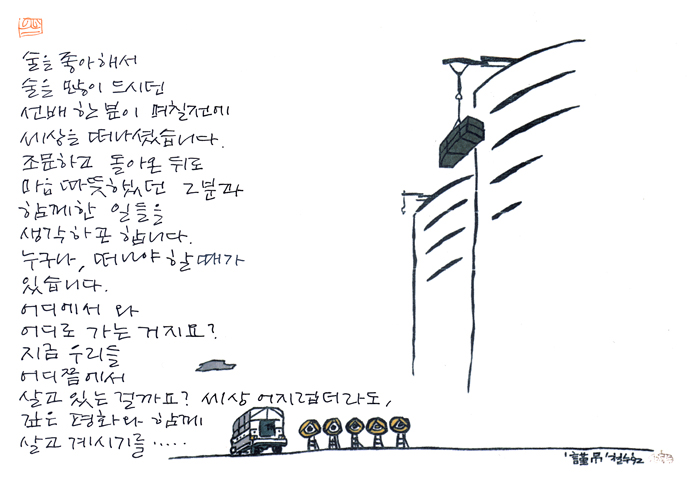 술을 좋아해서
술을 많이 드시던
선배 한 분이 며칠전에
세상을 떠나셨습니다.
조문하고 돌아온 뒤로
마음 따뜻했던 그분과
함께한 일들을
생각하곤 합니다.
누구나, 떠나야 할 때가
있습니다.
어디에서 와
어디로 가는 거지요?
지금 우리들
어디쯤에서
살고 있는 걸까요? 세상 어지럽더라도,
깊은 평화와 함께
살고 계시기를.....
'謹弔'